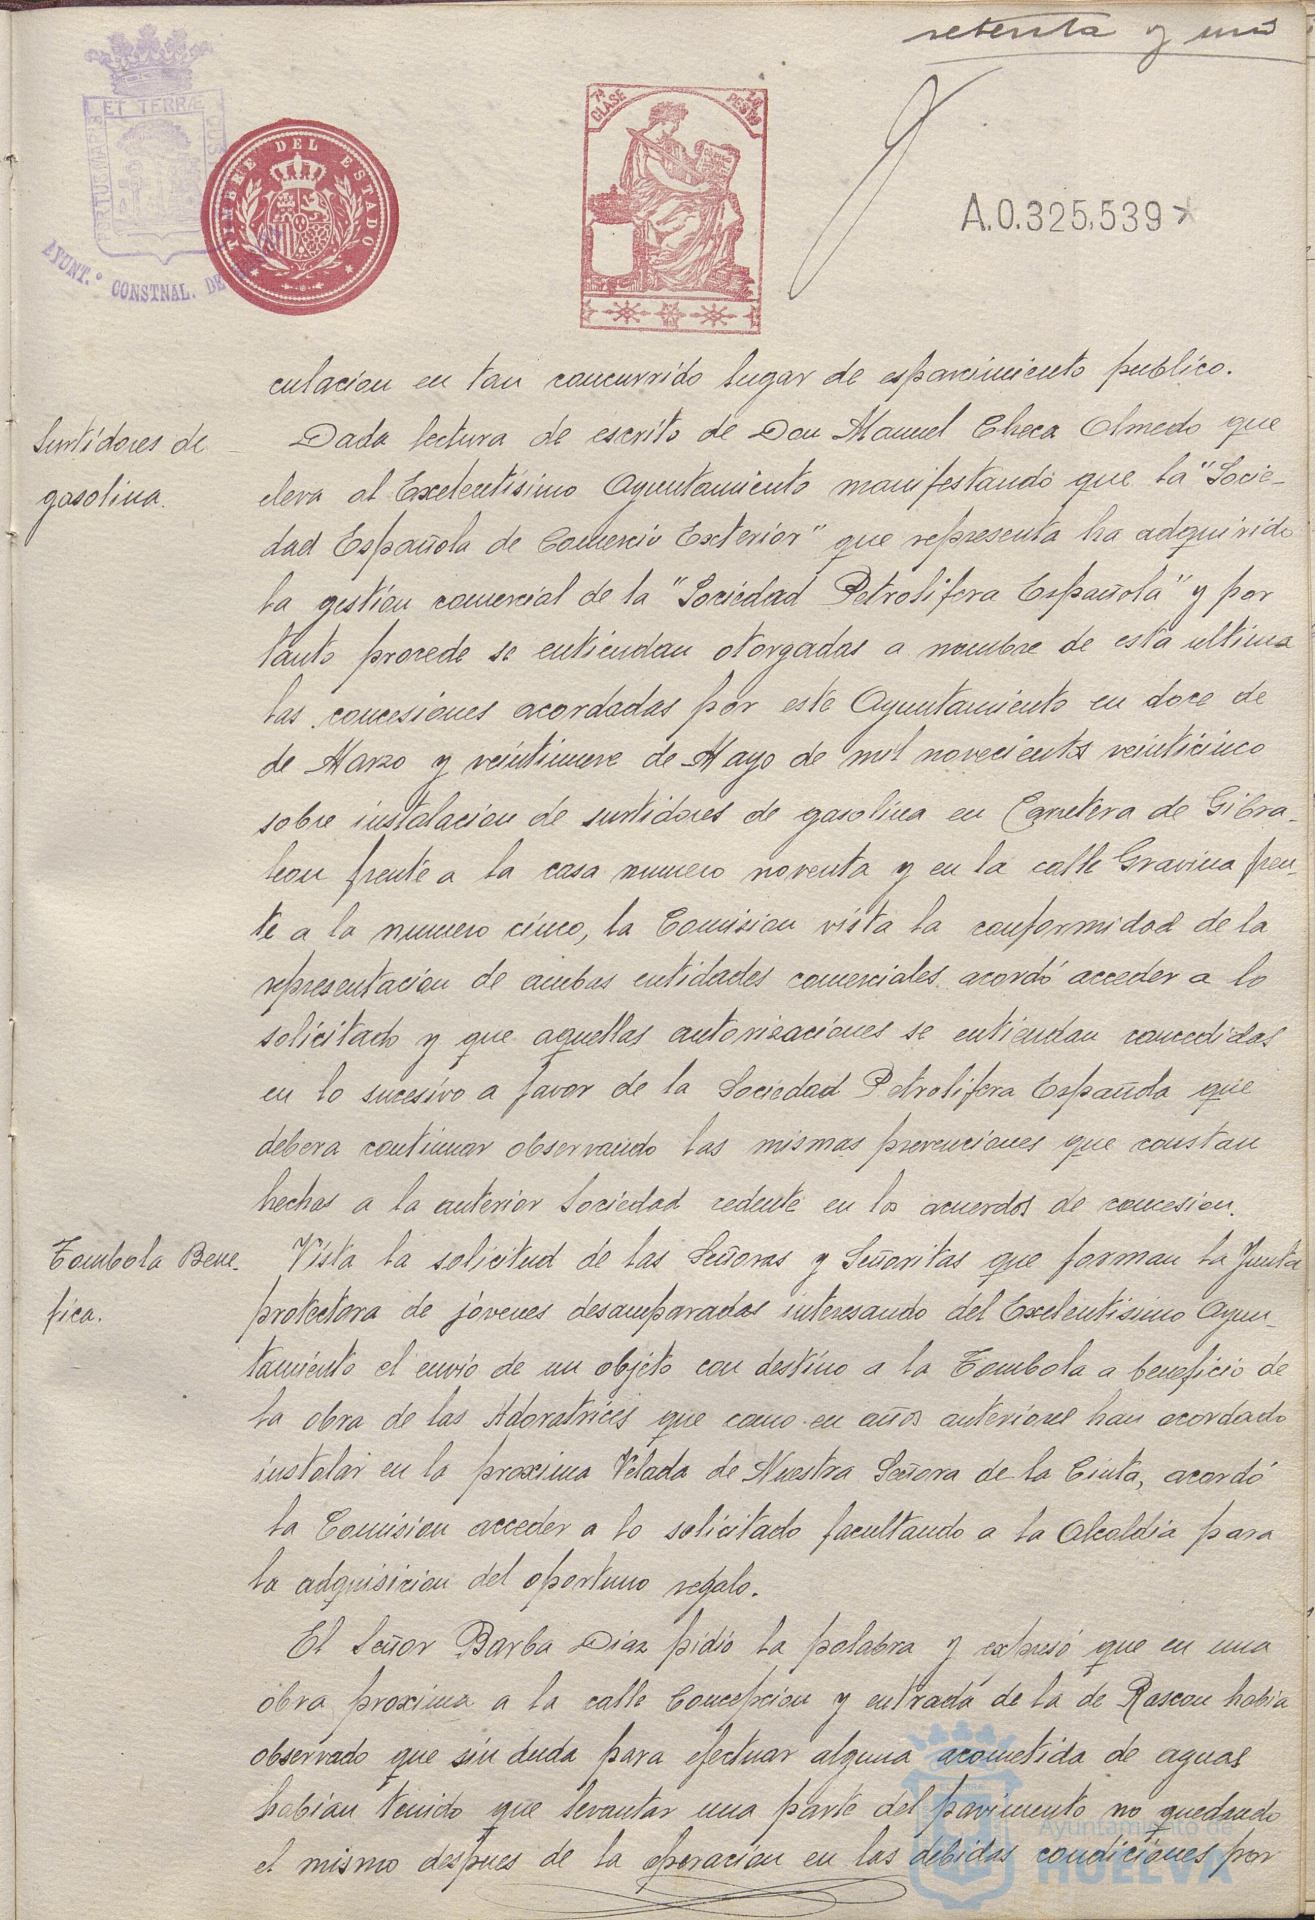 setenta y uno
PORTUS MARIS ET TERRÆ CUSTODIA
AYUNT.º CONSTNAL. DE
TIMBRE DEL ESTADO
7ª CLASE
PESETAS
A.0.325,539*
culacion en tan concurrido lugar de esparcimiento publico.
Surtidores de
gasolina.
Dada lectura de escrito de Don Manuel Checa Olmedo que
eleva al Exelentisimo Ayuntamiento manifestando que la "Socie-
dad Española de Comercio Exterior" que representa ha adquirido
la gestion comercial de la "Sociedad Petrolifera Española" y por
tanto procede se entiendan otorgadas a nombre de esta ultima
las concesiones acordadas por este Ayuntamiento en doce de
de Marzo y veintinueve de Mayo de mil novecientos veinticinco
sobre instalacion de surtidores de gasolina en Carretera de Gibra-
leon frente a la casa numero noventa y en la calle Gravina fren-
te a la numero cinco, la Comision vista la conformidad de la
representacion de ambas entidades comerciales acordó acceder a lo
solicitado y que aquellas autorizaciones se entiendan concedidas
en lo sucesivo a favor de la Sociedad Petrolifera Española que
debera continuar observando las mismas prevenciones que constan
hechas a la anterior Sociedad cedente en los acuerdos de concesion.
Tombola Bene-
fica.
Vista la solicitud de las Señoras y Señoritas que forman la Junta
protectora de jóvenes desamparadas interesando del Exelentisimo Ayun-
tamiento el envio de un objeto con destino a la Tombola a beneficio de
la obra de las Adoratrices que como en años anteriores han acordado
instalar en la proxima Velada de Nuestra Señora de la Cinta, acordó
la Comision acceder a lo solicitado facultando a la Alcaldia para
la adquisicion del oportuno regalo.
El Señor Barba Diaz pidió la palabra y expresó que en una
obra proxima a la calle Concepcion y entrada de la de Rascon habia
observado que sin duda para efectuar alguna acometida de aguas
habian tenido que levantar una parte del pavimento no quedando
el mismo despues de la operacion en las debidas condiciones por
Ayuntamiento de
HUELVA